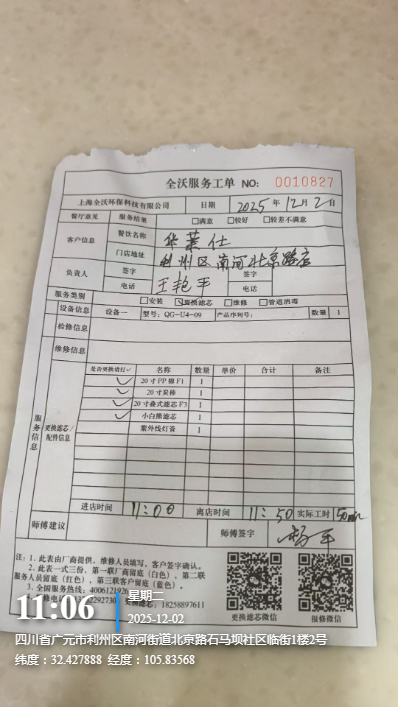 全沃服务工单 NO: 0010827
上海全沃环保科技有限公司 日期 2025年12月2日
餐厅意见 服务结果 □满意 □较好 □较差不满意
客户信息 餐饮名称 华莱仕
门店地址 利州区南河北京路店
负责人 签字 王艳平 签字
电话 电话
服务类别 □安装 ☑更换滤芯 □维修 □管道消毒
设备信息 设备一 型号: QG-U4-09 产品序列号: 数量 1
检修信息
维修信息
服务信息 更换滤芯/配件信息
是否更换请打✓ 名称 数量 单价 合计 备注
✓ 20寸PP棉F1 1
✓ 20寸炭棒 1
✓ 20寸叠式滤芯F3 1
✓ 小白熊滤芯 1
紫外线灯管 1
进店时间 11:00 离店时间 11:50 实际工时 50min
师傅建议 师傅签字
注: 1. 此表由厂商提供, 维修人员填写, 客户签字确认。
2. 此表一式三份, 第一联厂商留底(白色)、第二联
服务人员留底(红色)、第三联客户留底(蓝色)。
3. 全国服务热线: 400612192
18258897611
更换滤芯微信 报修微信
11:06 星期二
2025-12-02
四川省广元市利州区南河街道北京路石马坝社区临街1楼2号
纬度: 32.427888 经度: 105.83568